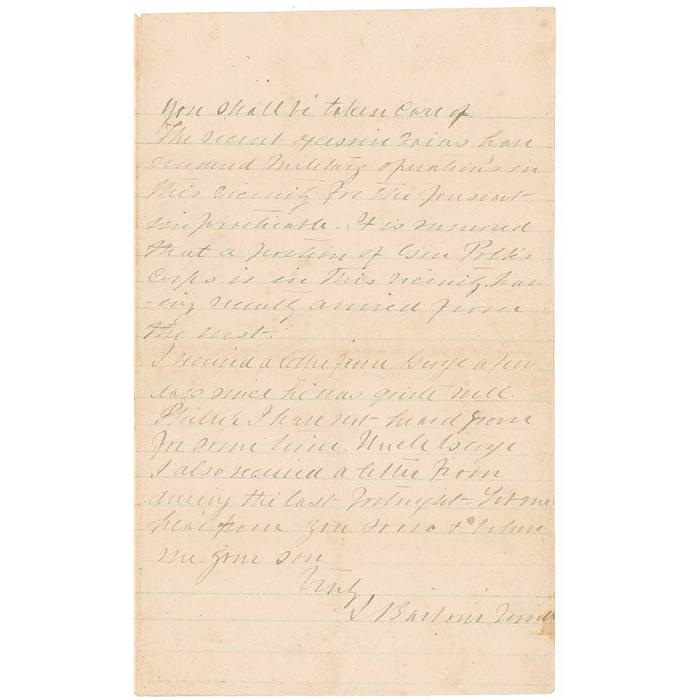 you shall be taken care of.
The recent excessive rains have
rendered Military operations in
this vicinity for the present
impracticable. It is rumored
that a portion of Gen Polk's
Corps is in this vicinity, hav-
-ing recently arrived from
the west.
I received a letter from George a few
days since he was quite well.
I have not heard from
for some time. Uncle George
I also received a letter from
during the last fortnight. Let me
hear from you soon & believe
me your son
Truly
J Barlow